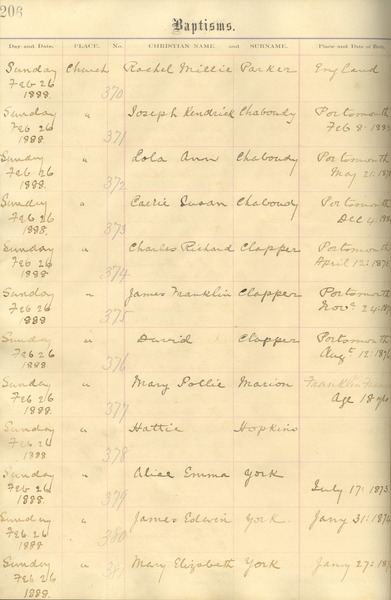 206
Baptisms.
Day and Date. PLACE. No. CHRISTIAN NAME and SURNAME. Place and Date of Birth.
Sunday Church Rachel Millie Parker England
Feb 26
1888. 370
Sunday " Joseph Kendrick Chaboudy Portsmouth
Feb 26 Feb 8.
1888. 371
Sunday " Lola Ann Chaboudy Portsmouth
Feb 26 May 21.
1888. 372
Sunday " Carrie Susan Chaboudy Portsmouth
Feb 26 Dec 4.
1888. 373
Sunday " Charles Richard Clapper Portsmouth
Feb 26 April 12.
1888. 374
Sunday " James Franklin Clapper Portsmouth
Feb 26 Novr 24.
1888. 375
Sunday " David Clapper Portsmouth
Feb 26 Augt 12.
1888. 376
Sunday " Mary Pollie Marion Franklin
Feb 26 Age 18
1888. 377
Sunday " Hattie Hopkins
Feb 26
1888. 378
Sunday " Alice Emma York
Feb 26 July 17.
1888. 379
Sunday " James Edwin York. Jany 31.
Feb 26
1888. 380
Sunday " Mary Elizabeth York Jany 27.
Feb 26
1888. 381